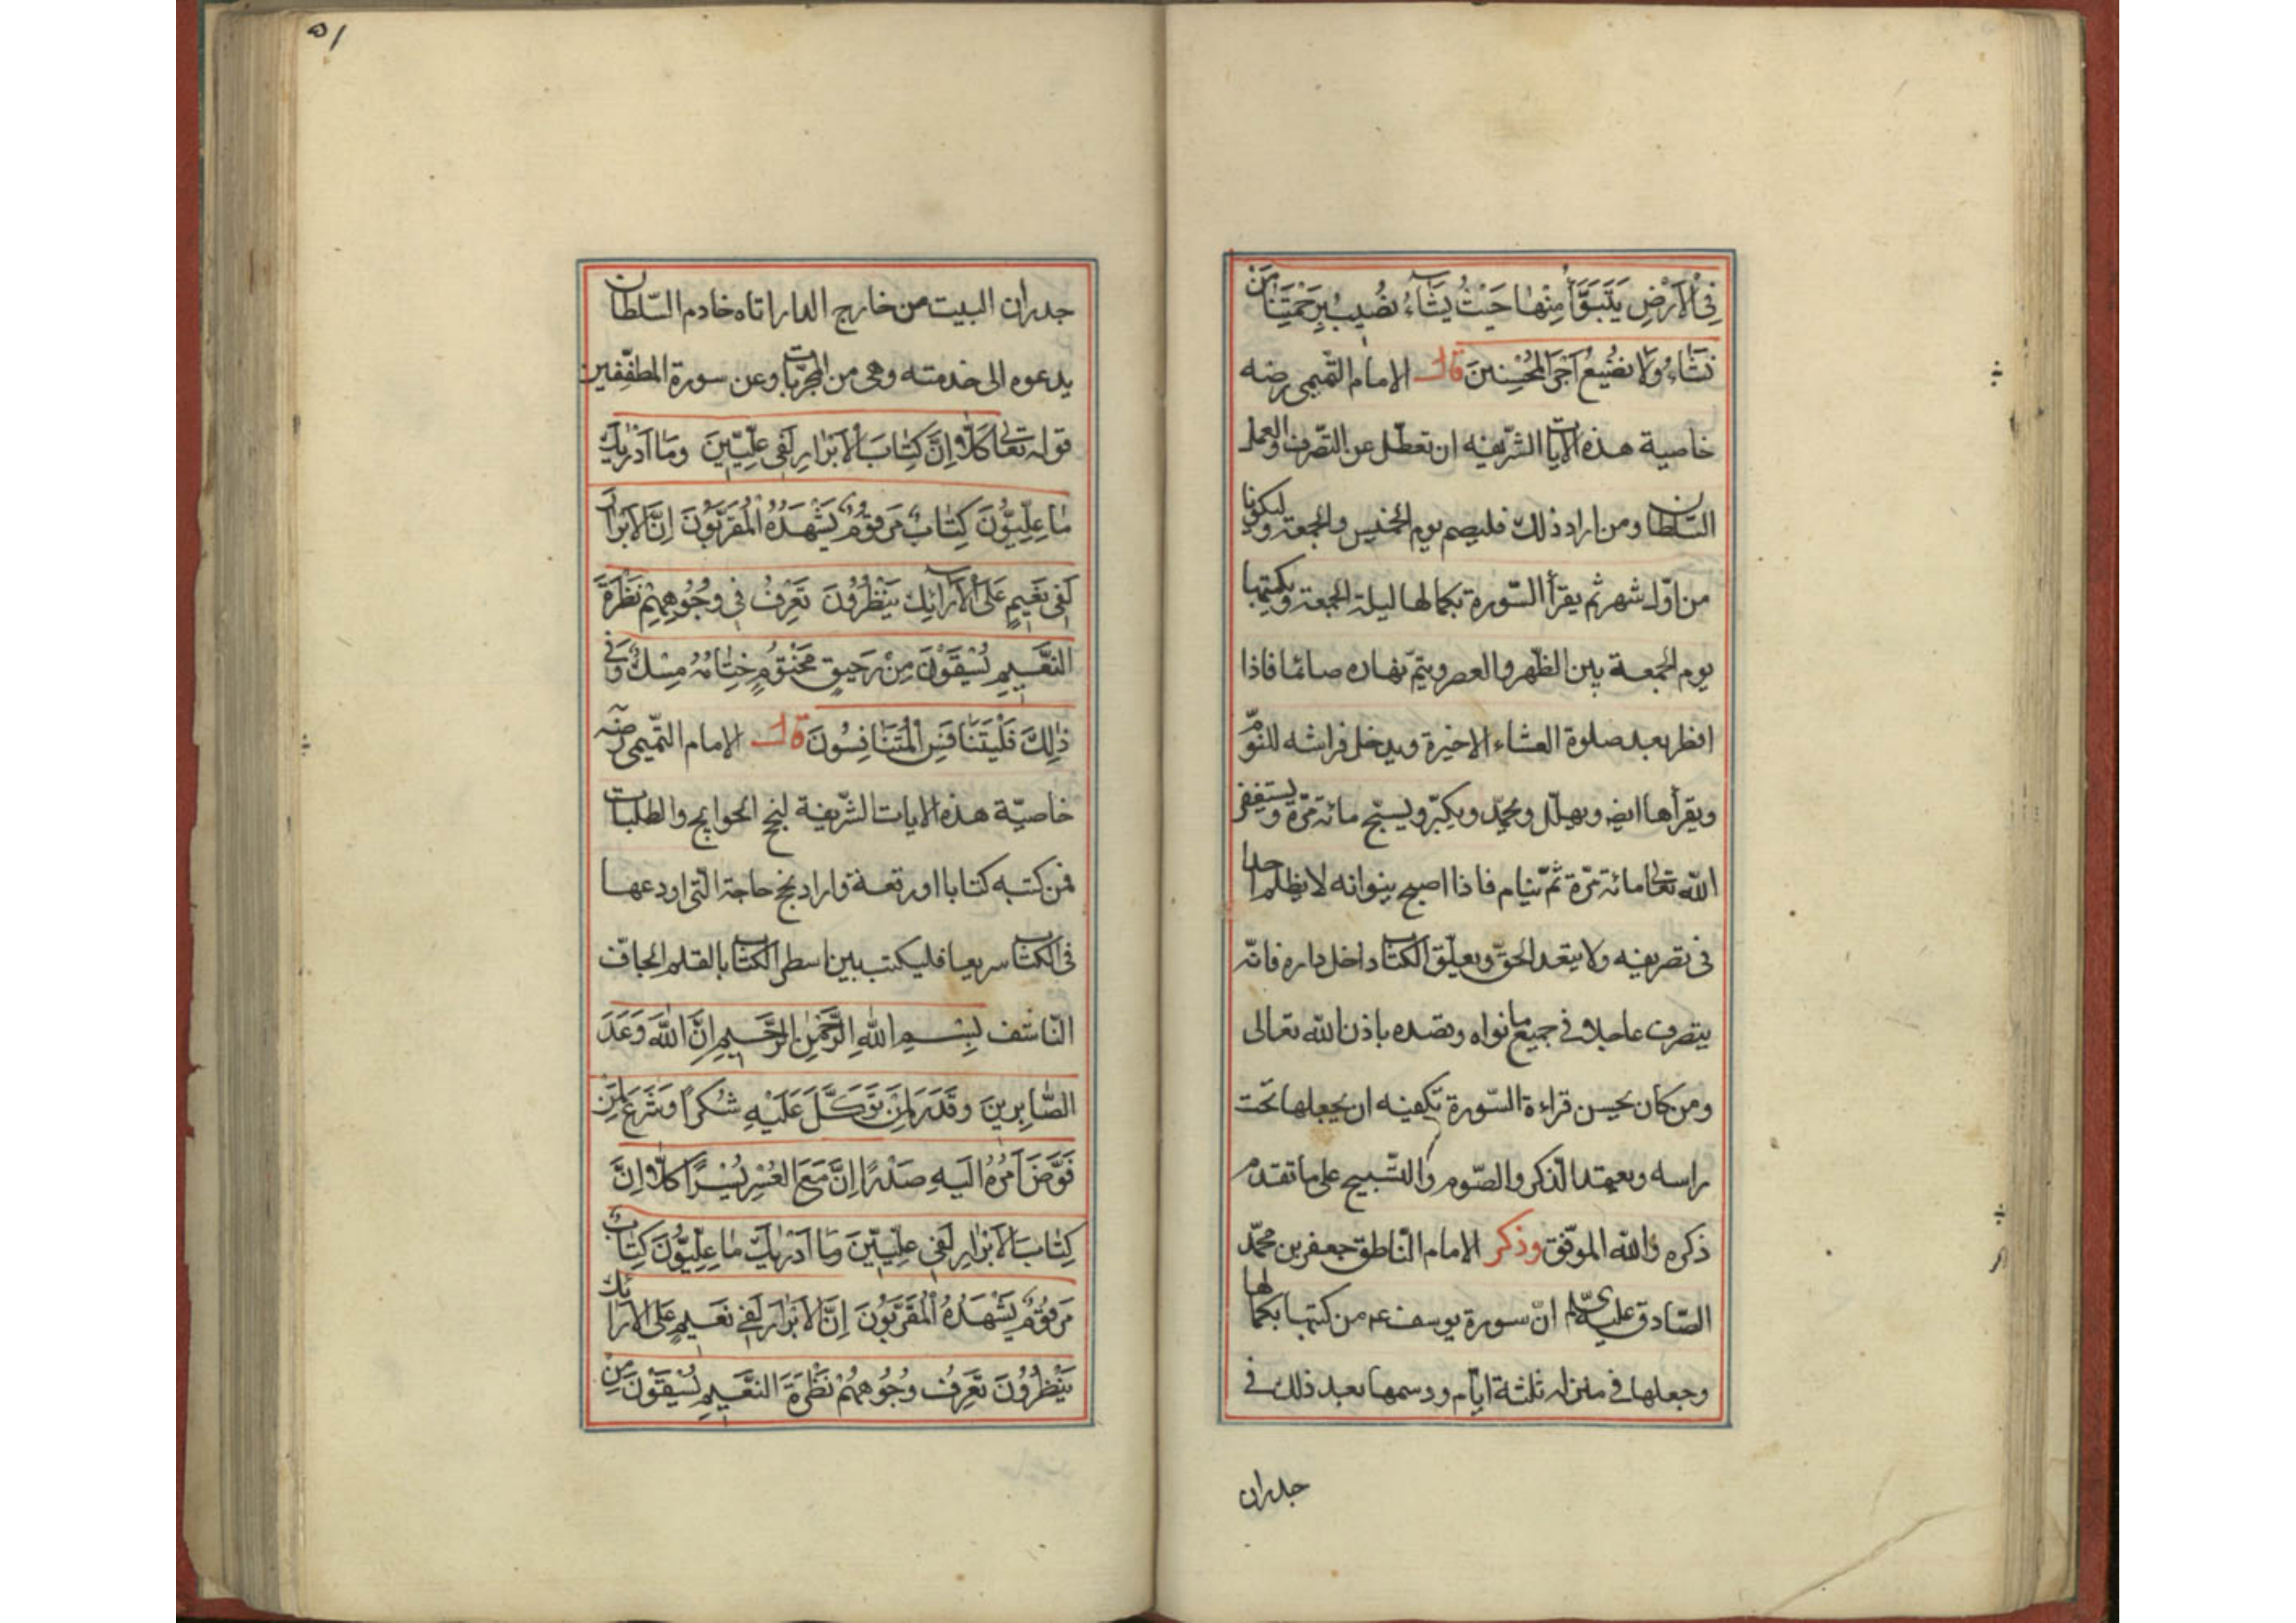 فِي الْاَرْضِ يَتَبَوَّأُ مِنْهَا حَيْثُ يَشَاءُ نُصِيبُ بِرَحْمَتِنَا مَنْ
نَشَاءُ وَلَا نُضِيعُ اَجْرَ الْمُحْسِنِينَ قال الامام التّميمى رضه
خاصية هذه الايات الشّريفه ان تعطّل عن التصّرف والعمل
السّلطان ومن اراد ذلك فليصم يوم الخميس والجمعة وليكونا
من اوّل شهر ثم يقرأ السّورة بكمالها ليلة الجمعة ويكتبها
يوم الجمعة بين الظّهر والعصر ويتمّ نهاره صائما فاذا
افطر بعد صلوة العشاء الاخيرة ويدخل فراشه للنّوم
ويقرأها ايضه ويهلّل ويحمّد ويكبّر ويسبّح مائة مرّة ويستغفر
اللّه تعالى مائة مرّة ثمّ ينام فاذا اصبح ينوانه لا يظلم احدا
فى تصريفه ولا يتعد الحقّ ويعلّق الكتاب داخل داره فانّه
يتصرف عاجلا فى جميع ما نواه وقصده باذن اللّه تعالى
ومن كان يحسن قراءة السّورة تكفيه ان يجعلها تحت
راسه ويعتمد الذكر والصّوم والتّسبيح على ما تقدم
ذكره واللّه الموفّق وذكر الامام النّاطق جعفر بن محمّد
الصّادق انّ سورة يوسف عم من كتبها بكمالها
وجعلها فى منزله ثلثة ايّام ورسمها بعد ذلك فى
جدران
٥١
جدران البيت من خارج الدار اتاه خادم السّلطان
يدعوه الى خدمته وهى من المجرّبات وعن سورة المطفّفين
قوله تعالى كَلَّا اِنَّ كِتَابَ الْاَبْرَارِ لَفِى عِلِّيّينَ وَمَا اَدْرٰيكَ
مَا عِلِّيُّونَ كِتَابٌ مَرْقُومٌ يَشْهَدُهُ الْمُقَرَّبُونَ اِنَّ الْاَبْرَارَ
لَفِى نَعِيمٍ عَلَى الْاَرَائِكِ يَنْظُرُونَ تَعْرِفُ فِى وُجُوهِهِمْ نَظْرَةَ
النَّعِيمِ يُسْقَوْنَ مِنْ رَحِيقٍ مَخْتُومٍ خِتَامُهُ مِسْكٌ وَفِى
ذٰلِكَ فَلْيَتَنَافَسِ الْمُتَنَافِسُونَ قال الامام التّميمى رضه
خاصيّة هذه الايات الشّريفة لنجح الحوايج والطلبات
فمن كتبه كتابا او رقعة واراد نجح حاجة الّتى اودعها
فى الكتاب سريعا فليكتب بين اسطر الكتاب بالقلم الجافّ
النّاشف بِسْمِ اللّٰهِ الرَّحْمٰنِ الرَّحِيمِ اِنَّ اللّٰهَ وَعَدَ
الصَّابِرِينَ وَقَدَّرَ لِمَنْ تَوَكَّلَ عَلَيْهِ شُكْرًا وَشَرَعَ لِمَنْ
فَوَّضَ اَمْرَهُ اِلَيْهِ صَدْرًا اِنَّ مَعَ الْعُسْرِ يُسْرًا كَلَّا اِنَّ
كِتَابَ الْاَبْرَارِ لَفِى عِلِّيّينَ وَمَا اَدْرٰيكَ مَا عِلِّيُّونَ كِتَابٌ
مَرْقُومٌ يَشْهَدُهُ الْمُقَرَّبُونَ اِنَّ الْاَبْرَارَ لَفِى نَعِيمٍ عَلَى الْاَرَائِكِ
يَنْظُرُونَ تَعْرِفُ وُجُوهِهِمْ نَظْرَةَ النَّعِيمِ يُسْقَوْنَ مِنْ